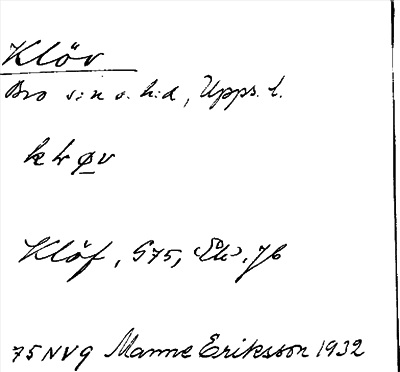 Klöv
Bro s:n o. h:d, Upps. l.
klø̲v
Klöf, S75, Ek. Jb
75NV9 Manne Eriksson 1932